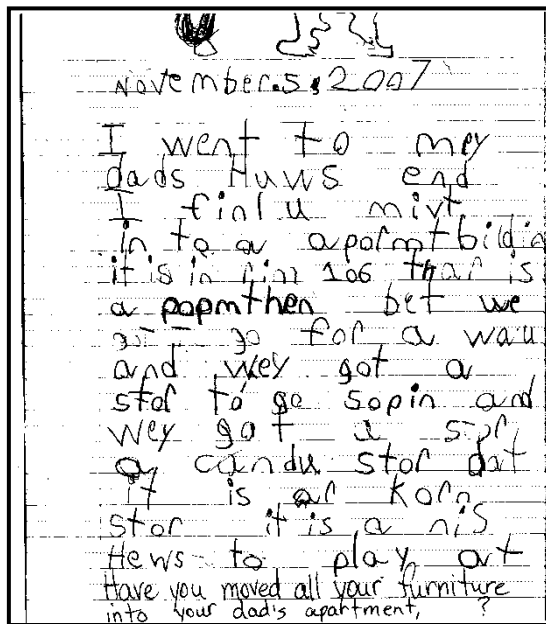 November.5.2007
I went to mey
dads Huws end
I finlu mivt
in to a apormtbildin
it is in rim 106 thar is
a popmthen bet we
go for a wau
and wey got a
stor to go sopin and
wey got a stor
a candu stor dat
it is ar korn
stor it is a nis
Hews to play art
Have you moved all your furniture
into your dad's apartment, ?